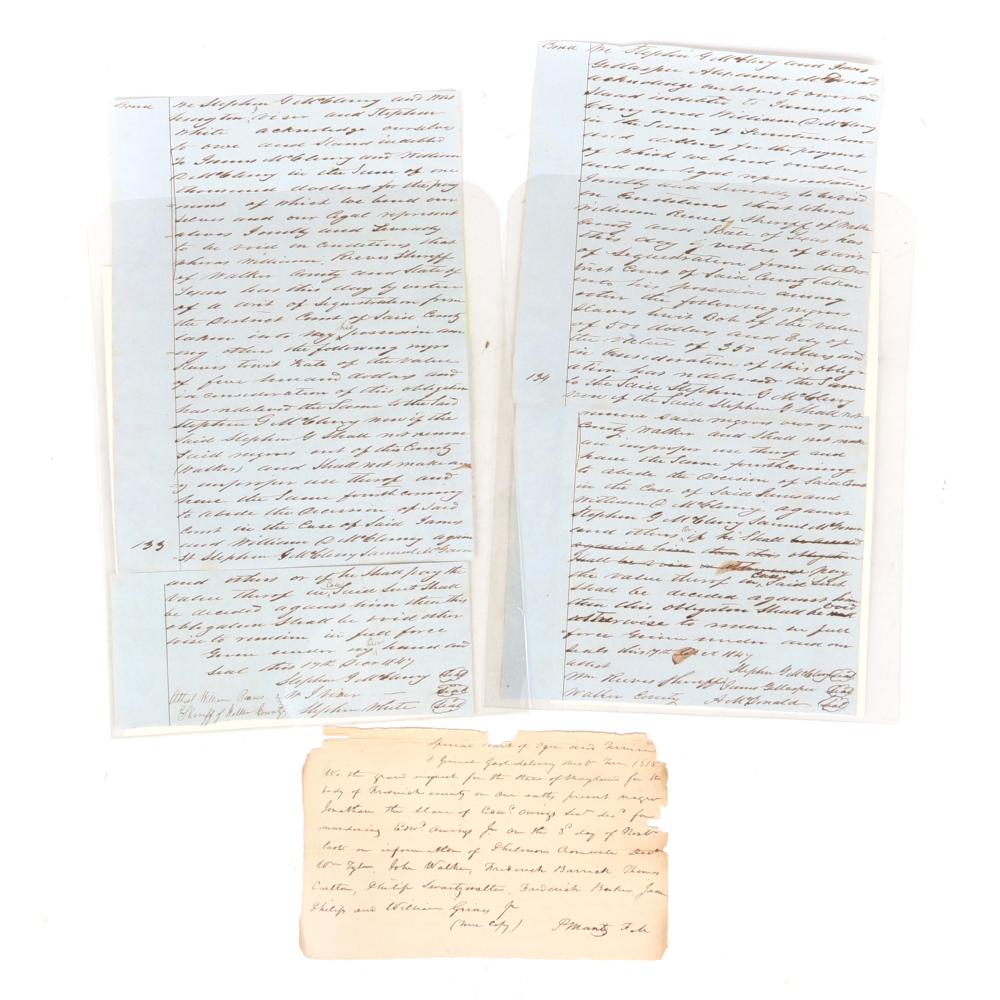 Bond We Stephen G McCleny and Was
hington Viser and Stephen
White acknowledge ourselves
to owe and Stand indebted
To James McCleny and William
McCleny in the Sum of one
thousand dollars for the pay
ment of which we bend our
selves and our legal represent
atives Jointly and Severaly
to be void on Conditions that
wheras William Reeves Sheriff
of Walker County and State of
Texas has this day by virtue
of a writ of Sequestration from
the District Court of Said County
taken into my his possession am
ong others the following negro
Slaves towit Kate of the value
of five hundred dollars and
in Consideration of this obligation
has redelivered the Same to the Said
Stephen G McCleny now if the
Said Stephen G Shall not remove
Said negroes out of this County
(Walker) and Shall not make an
y improper use therof and
have the Same fourthcoming
to abide the decission of Said
Court in the Case of Said James
133 and William P McCleny again
st Stephen G McCleny Samuel
and others or if he Shall pay the
value therof in Case Said Suit Shall
be decided against him then this
obligation Shall be void other
wise to remain in full force
Given under my hand and
Seal this 17th 1847
Stephen G McCleny Seal
W J Viser Seal
Stephen White Seal
Attest William Reeves
Sheriff of Walker County
Bond We Stephen G McCleny and James
Gillaspie Alexander McDonald
acknowledge ourselves to owe and
Stand indebted to James
McCleny and William P McCleny
in the Sum of Seventeen hun
dred dollars for the payment
of which we bend ourselves
and our legal representatives
Jointly and Severaly to be void
on Conditions that wheras
William Reeves Sheriff of Walker
County and State of Texas has
this day by vertue of a writ
of Sequestration from the Dis
trict Court of Said County taken
into his possession among
other the following negros
Slaves towit Bob of the value
of 500 dollars and of
the value of 350 dollars and
in Consideration of this oblig
134 ation has redelivered the Same
to the Said Stephen G McCleny
now if the Said Stephen G Shall not
remove said negroes out of this
County Walker and Shall not make
an improper use therof and
have the Same fourthcoming
to abide the decision of Said Court
in the Case of Said James and
William P McCleny against
Stephen G McCleny Samuel
and others or if he Shall
pay
the value therof in Case Said Suit
Shall be decided against him
then this obligation Shall be void
otherwise to remain in full
force Given under our
Seals this 17th 1847
attest Stephen G McCleny Seal
Wm Reeves Sheriff James Gillaspie Seal
Walker County A McDonald Seal
Special Court of Oyer and Terminer
& General Gaol delivery Decr Term 1818
We the grand inquest for the State of Maryland for the
body of Frederick county on Our oaths present negro
Jonathan the Slave of Edwd Owings Senr decd for
murdering Edwd Owings Jr on the 3d day of Novr
last on information of Philemon Cromwell
Wm Tyler, John Walker, Frederick Barrick, Thomas
Carlton, Philip Swartzwalter, Frederick Baker, James
Philips and William Grimes Jr
(True Copy) P Mantz F M